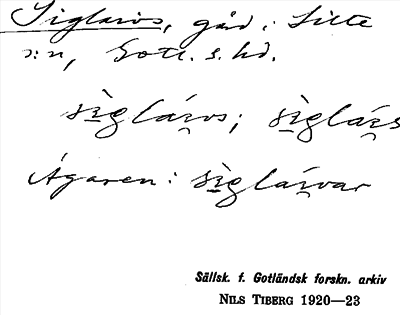 Siglaivs, gård i Silte
s:n, Gotl. s. hd.
sìgláivs; sìgláis
Ägaren: sìgláivar
Sällsk. f. Gotländsk forskn. arkiv
NILS TIBERG 1920—23